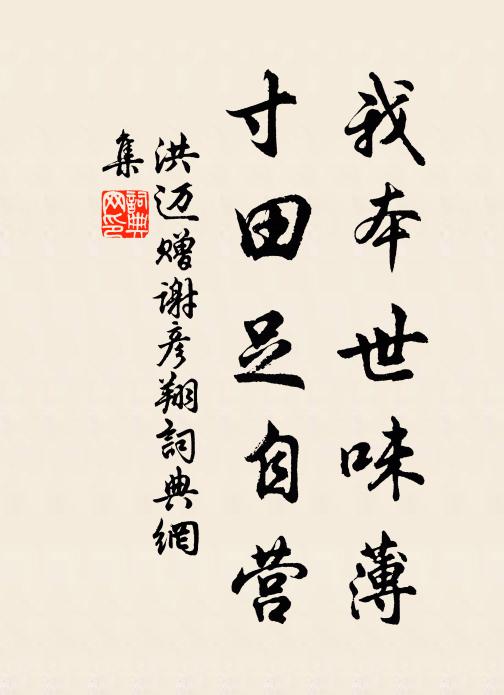 我本世味薄
寸田足自营
洪迈赠谢彦翔詞典網
集
詞典网印